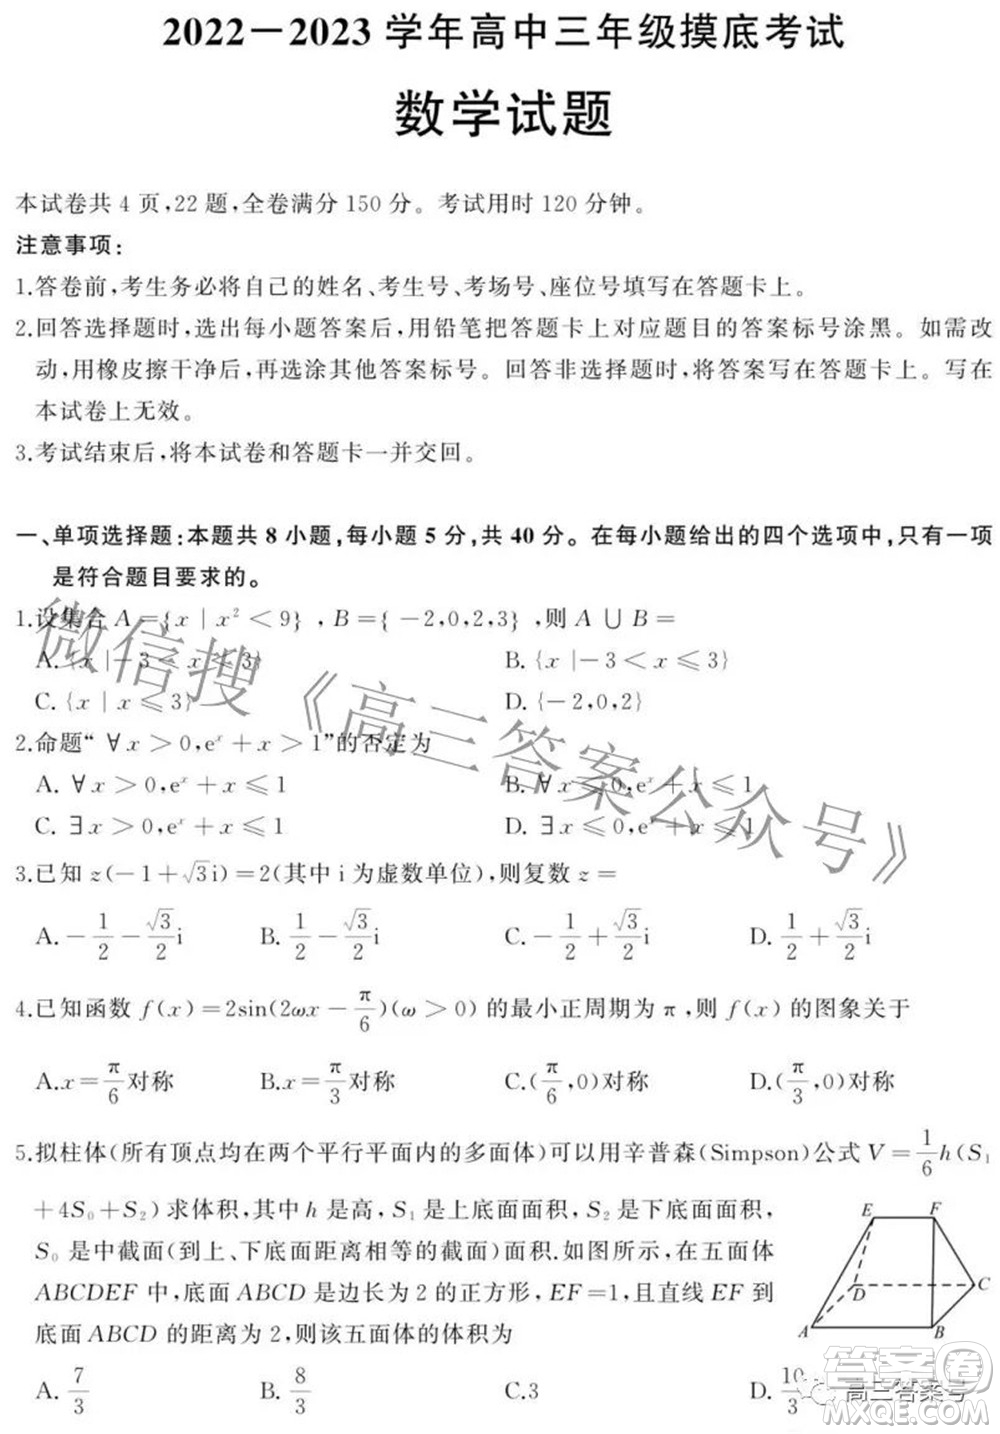 2022－2023 学年高中三年级摸底考试
数学试题
本试卷共 4 页,22 题,全卷满分 150 分。考试用时 120 分钟。
注意事项:
1.答卷前,考生务必将自己的姓名、考生号、考场号、座位号填写在答题卡上。
2.回答选择题时,选出每小题答案后,用铅笔把答题卡上对应题目的答案标号涂黑。如需改
动,用橡皮擦干净后,再选涂其他答案标号。回答非选择题时,将答案写在答题卡上。写在
本试卷上无效。
3.考试结束后,将本试卷和答题卡一并交回。
一、单项选择题:本题共 8 小题,每小题 5 分,共 40 分。在每小题给出的四个选项中,只有一项
是符合题目要求的。
1.设集合 A={x | x² < 9} ,B={-2,0,2,3} ,则 A ∪ B=
A. {x |-3 < x ⩽ 3} B. {x |-3 < x ⩽ 3}
C. {x | x ⩽ 3} D. {-2,0,2}
2.命题“ ∀ x > 0,eˣ + x > 1”的否定为
A. ∀ x > 0,eˣ + x ⩽ 1 B. ∀ x ⩽ 0,eˣ + x ⩽ 1
C. ∃ x > 0,eˣ + x ⩽ 1 D. ∃ x ⩽ 0,eˣ + x ⩽ 1
3.已知 z(-1+√3i)=2(其中 i 为虚数单位),则复数 z=
A. -1/2 - √3/2 i B. 1/2 - √3/2 i C. -1/2 + √3/2 i D. 1/2 + √3/2 i
4.已知函数 f(x)=2sin(2ωx - π/6)(ω > 0) 的最小正周期为 π,则 f(x) 的图象关于
A.x= π/6 对称 B.x= π/3 对称 C.(π/6,0)对称 D.(π/3,0)对称
5.拟柱体(所有顶点均在两个平行平面内的多面体)可以用辛普森(Simpson)公式 V= 1/6 h(S₁
+4S₀+S₂)求体积,其中 h 是高,S₁ 是上底面面积,S₂ 是下底面面积,
S₀ 是中截面(到上、下底面距离相等的截面)面积.如图所示,在五面体
ABCDEF 中,底面 ABCD 是边长为 2 的正方形,EF=1,且直线 EF 到
底面 ABCD 的距离为 2,则该五面体的体积为
E F
D C
A B
A. 7/3 B. 8/3 C.3 D. 10/3
微信搜《高三答案公众号》
高三答案号
答案圈
MXQE.COM